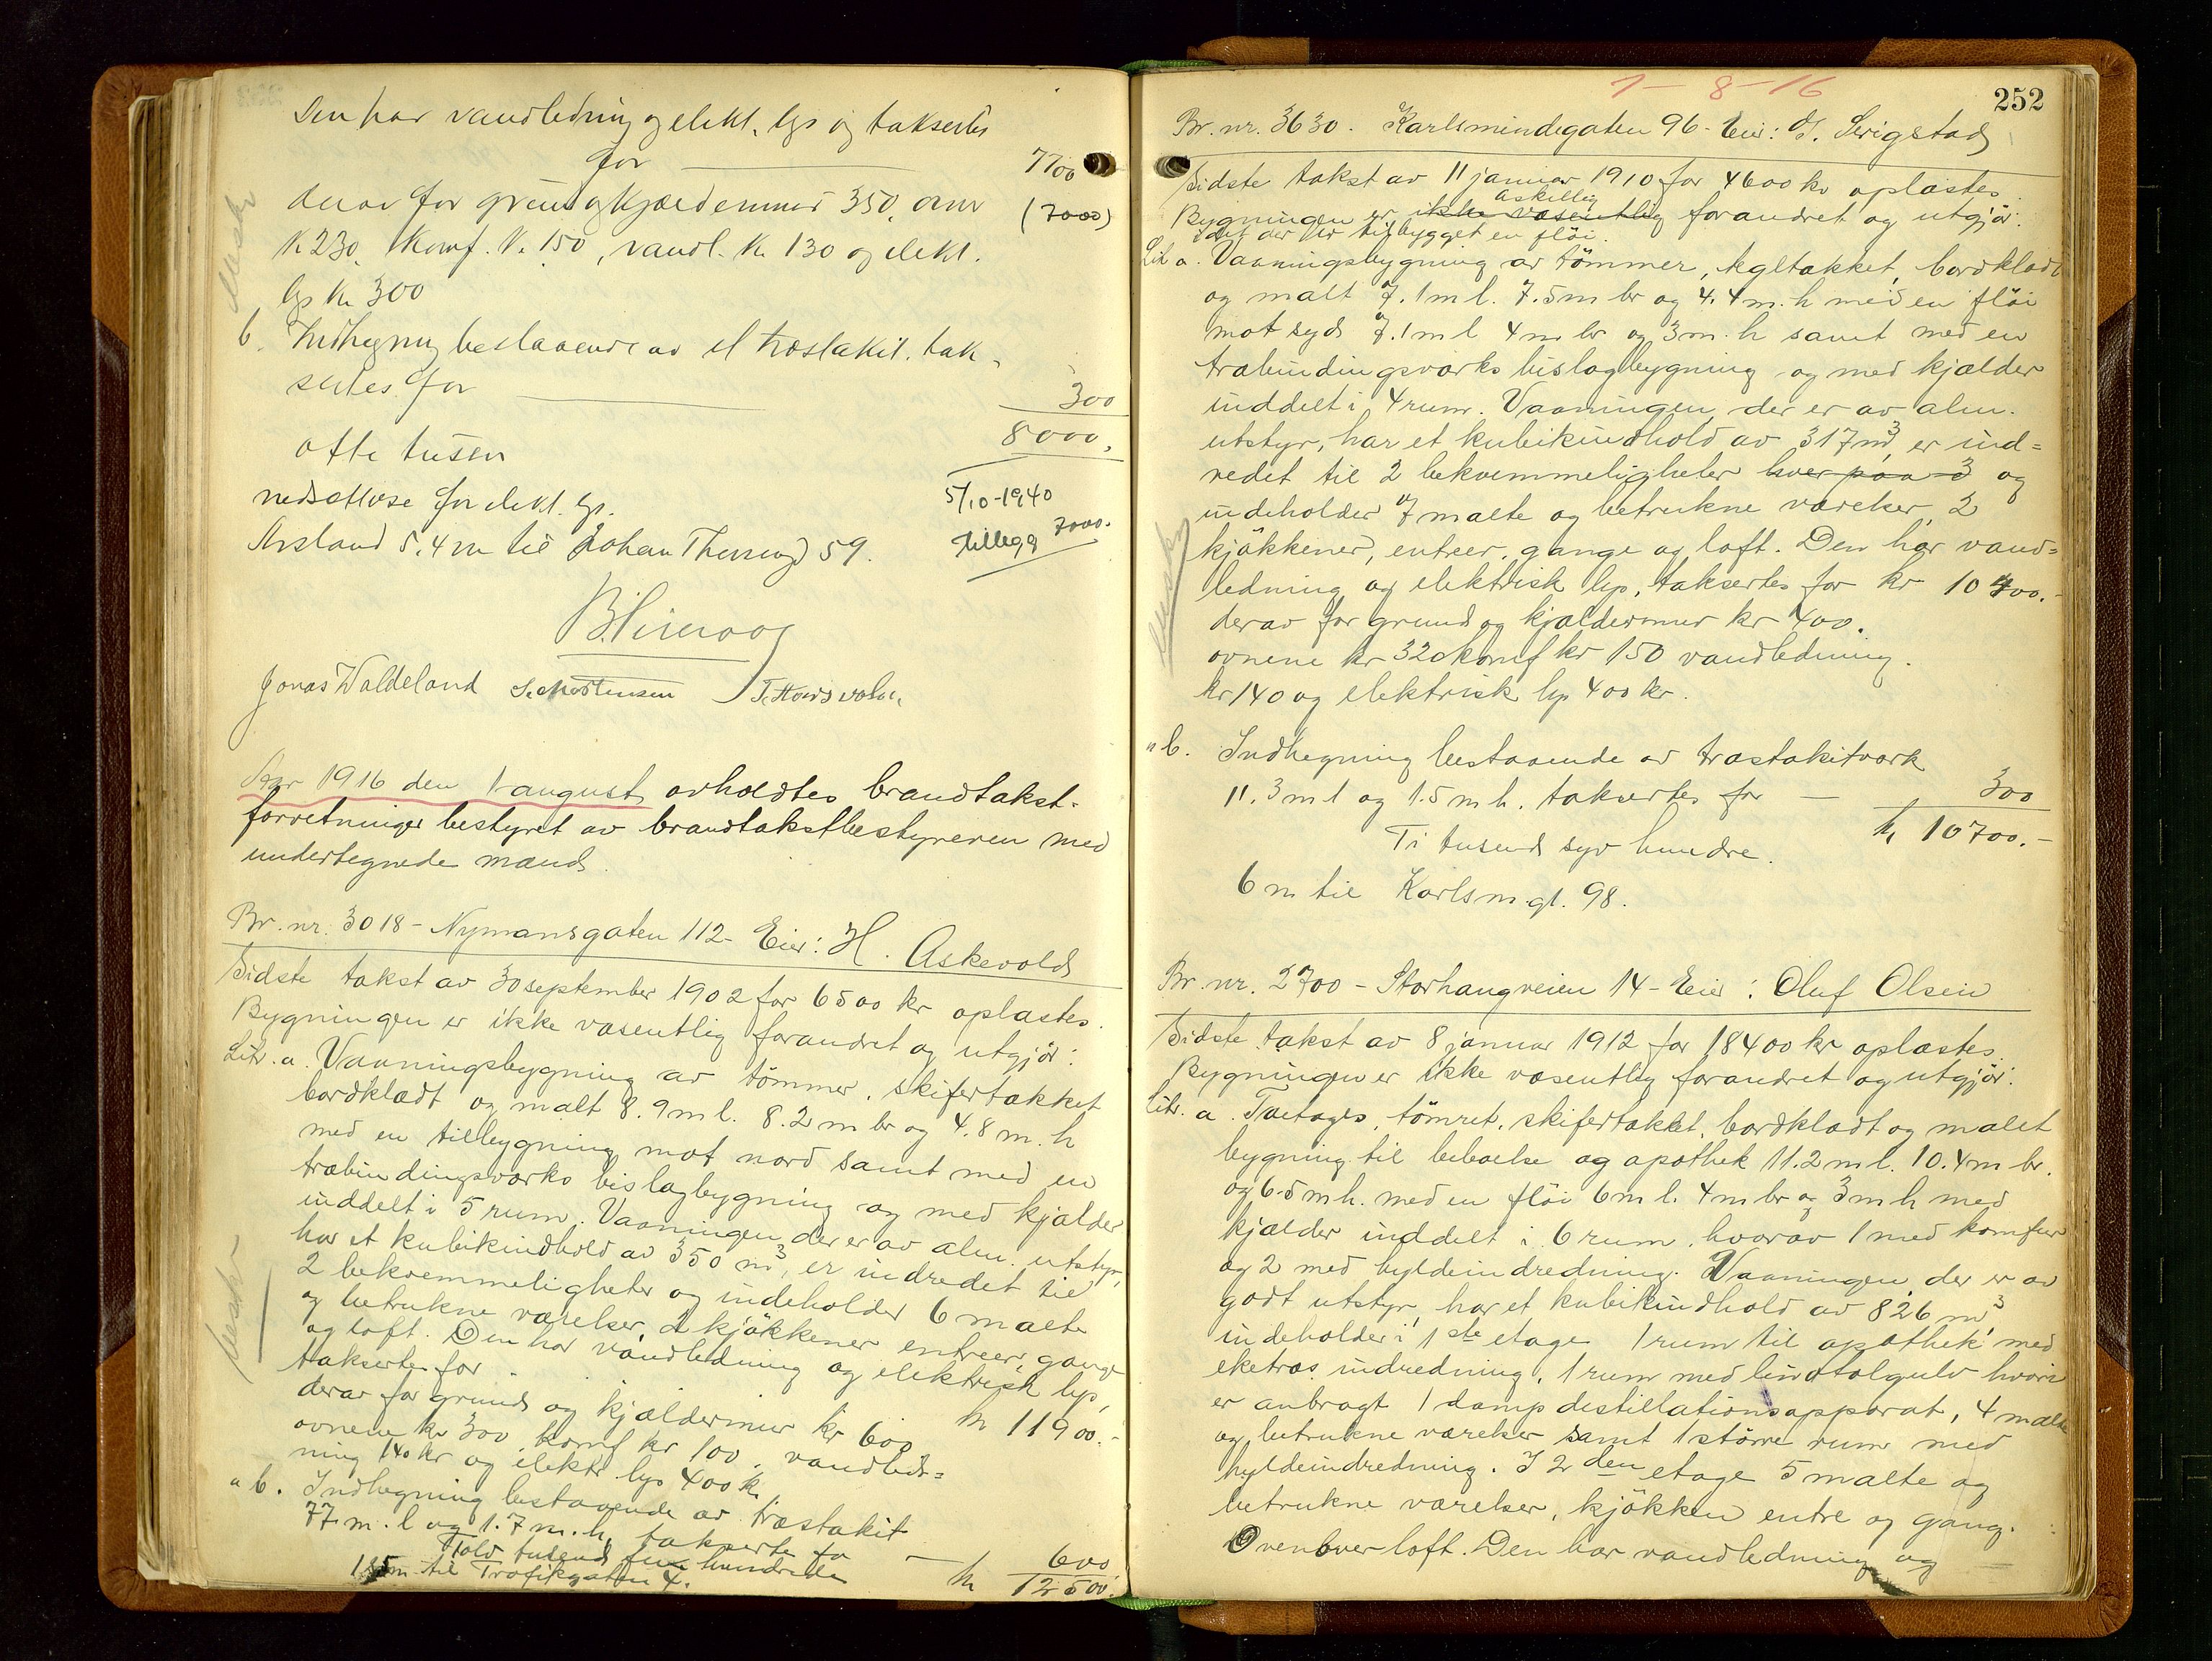 Den har vandledning og elekt. lys og takseres
for 7700
derav for grund og kjældermur 350, ovne (7000)
kr 230, komf. kr. 150, vandl. kr. 130 og elekt.
lys kr 300
b. Indhegning bestaaende av et træstakit. tak-
seres for 300
8000,
otte tusen
nedsættelse for elekt. lys. 5/10-1940
Avstand 5,4 m til Johan Thorsensgd 59. tillegg 7000.
Jonas Waldeland S. Mortensen
Aar 1916 den 1 august avholdtes brandtakst-
forretninger bestyret av brandtakstbestyreren med
undertegnede mænd.
Br. nr. 3018 - Nymansgaten 112 - Eier: H. Askevold
Sidste takst av 30 september 1902 for 6500 kr oplæstes.
Bygningen er ikke væsentlig forandret og utgjör:
Litr. a. Vaaningsbygning av tömmer, skifertækket
bordklædt og malt 8.9 m l. 8.2 m br og 4.8 m. h
med en tilbygning mot nord samt med en
træbindingsværks bislagbygning og med kjælder
inddelt i 5 rum. Vaaningen der er av alm. utstyr,
har et kubikindhold av 350 m³, er indredet til
2 bekvemmeligheter og indeholder 6 malte
og betrukne værelser, 2 kjökkener entreer, gange
og loft. Den har vandledning og elektrisk lys,
takseres for kr 11900.-
derav for grund og kjældermur kr 600
ovnene kr 300, komf kr 100, vandled=
ning 140 kr og elektr lys 400 kr.
" b. Indhegning bestaaende av træstakit
77 m. l og 1.7 m. h, takseres for 600
Tolv tusend fem hundrede kr 12500.
185m til Trafikgaten 4.
7-8-16
252
Br. nr. 3630. Karlsmindegaten 96 - Eier: T. Serigstad
Sidste takst av 11 januar 1910 for 4600 kr oplæstes.
askillig
Bygningen er ikke væsentlig forandret og utgjör:
idet der er tilbygget en flöi.
Lit a. Vaaningsbygning av tömmer, tegltækket, bordklædt
og malt 7.1 m l. 7.5 m br og 4.4 m. h med en flöi
mot syd 7.1 m l 4 m br og 3 m. h samt med en
træbindingsværks bislagbygning og med kjælder
inddelt i 4 rum. Vaaningen der er av alm.
utstyr, har et kubikindhold av 317 m³, er ind=
redet til 2 bekvemmeligheter hver paa 3 og
indeholder 7 malte og betrukne værelser, 2
kjökkener, entreer, gange og loft. Den har vand=
ledning og elektrisk lys, takseres for kr 10400.-
derav for grund og kjældermur kr 400.
ovnene kr 320 komf kr 150 vandledning.
kr 140 og elektrisk lys 400 kr.
" b. Indhegning bestaaende av træstakitværk
11.3 m l og 1.5 m h. takseres for — 300
Ti tusend syv hundre. kr 10700.-
6 m til Karlsm.gt. 98.
Br. nr. 2700 - Storhaugveien 14 - Eier: Oluf Olsen
Sidste takst av 8 januar 1912 for 18400 kr oplæstes.
Bygningen er ikke væsentlig forandret og utgjör:
Litr. a. Toetages, tömret, skifertækket, bordklædt og malet
bygning til beboelse og apothek 11.2 m l. 10.4 m br.
og 6.5 m h. med en flöi 6 m l. 4 m br og 3 m h med
kjælder inddelt i 6 rum, hvorav 1 med komfur
og 2 med hyldeindredning. Vaaningen der er av
godt utstyr, har et kubikindhold av 826 m³,
indeholder i 1ste etage 1 rum til apothek med
eketræs indredning, 1 rum med lindtolgulv hvori
er anbragt 1 damp destillationsapparat, 4 malte
og betrukne værelser samt 1 större rum med
hyldeindredning. I 2den etage 5 malte og
betrukne værelser, kjökken entre og gang.
Ovenover loft. Den har vandledning og